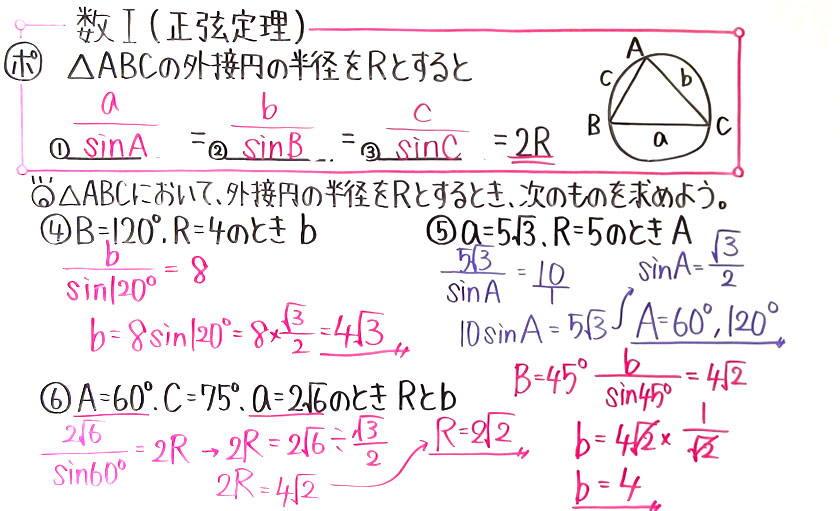 数I(正弦定理)
ポ △ABCの外接円の半径をRとすると
① a/sinA = ② b/sinB = ③ c/sinC = 2R
A
c b
B a C
△ABCにおいて、外接円の半径をRとするとき、次のものを求めよう。
④B=120°.R=4のとき b
b/sin120° = 8
b=8sin120°=8×√3/2=4√3
⑤a=5√3、R=5のとき A
5√3/sinA = 10/1
10sinA=5√3
sinA=√3/2
A=60°,120°
⑥A=60°.C=75°、a=2√6のとき Rとb
2√6/sin60° = 2R → 2R=2√6÷√3/2
2R=4√2
R=2√2
B=45° b/sin45° = 4√2
b=4√2×1/√2
b=4